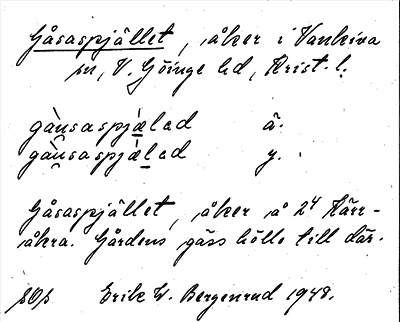 Gåsaspjället, åker i Vankiva
sn, V. Göinge hd, Krist. l.
gàu̯saspjæ̀lad ä.
gàu̯saspjæ̀lad y.
Gåsaspjället, åker å 24 Kärr-
åkra. Gårdens gäss hölls till där.
Erik W. Bergenrud 1948.